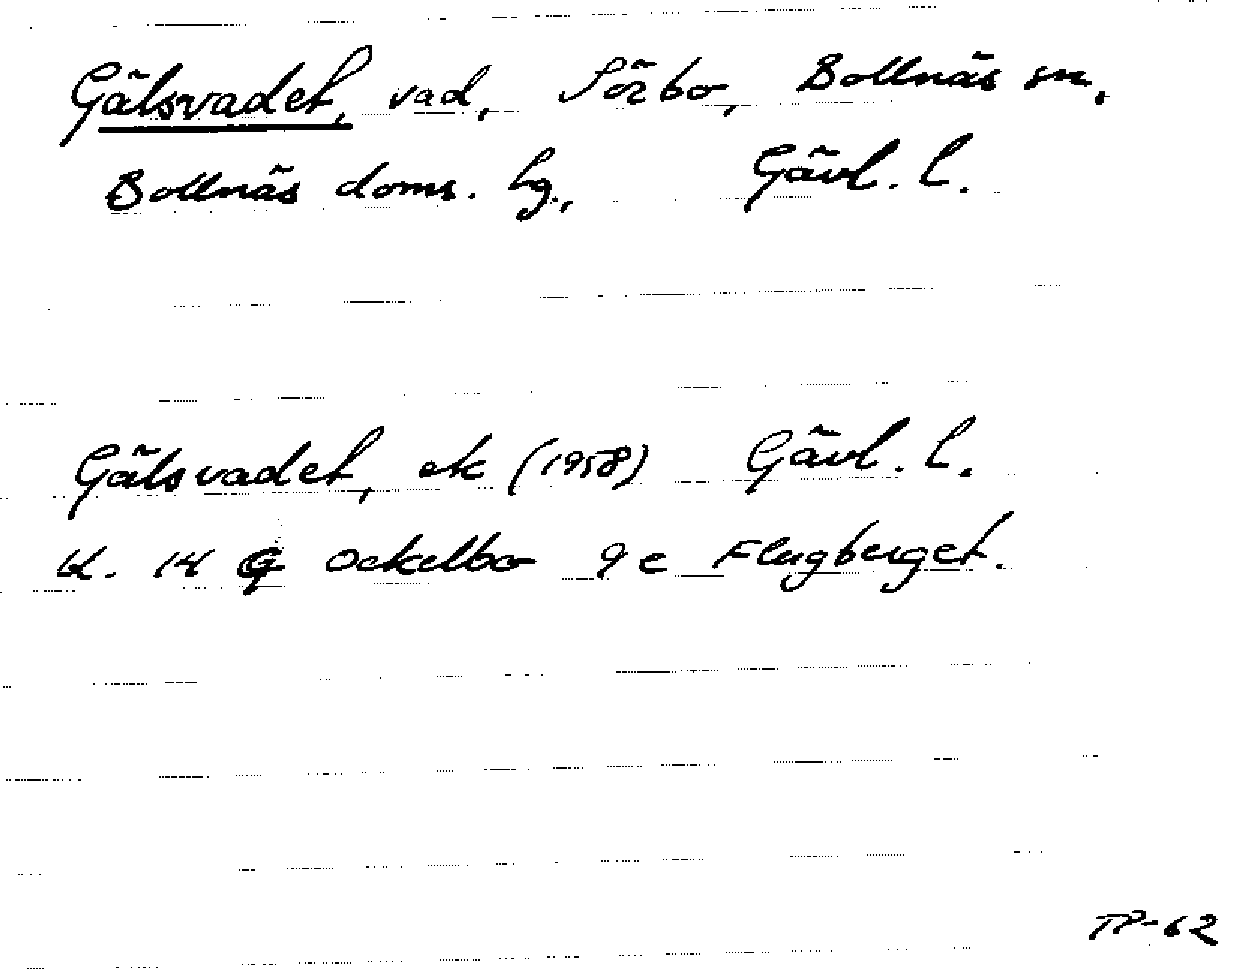 Gälsvadet, vad, Sörbo, Bollnäs sn,
Bollnäs doms. hg., Gävl. l.
Gälsvadet, ek (1958) Gävl. l.
bl. 14 G Ockelbo 9 e Flugberget.
TP-62